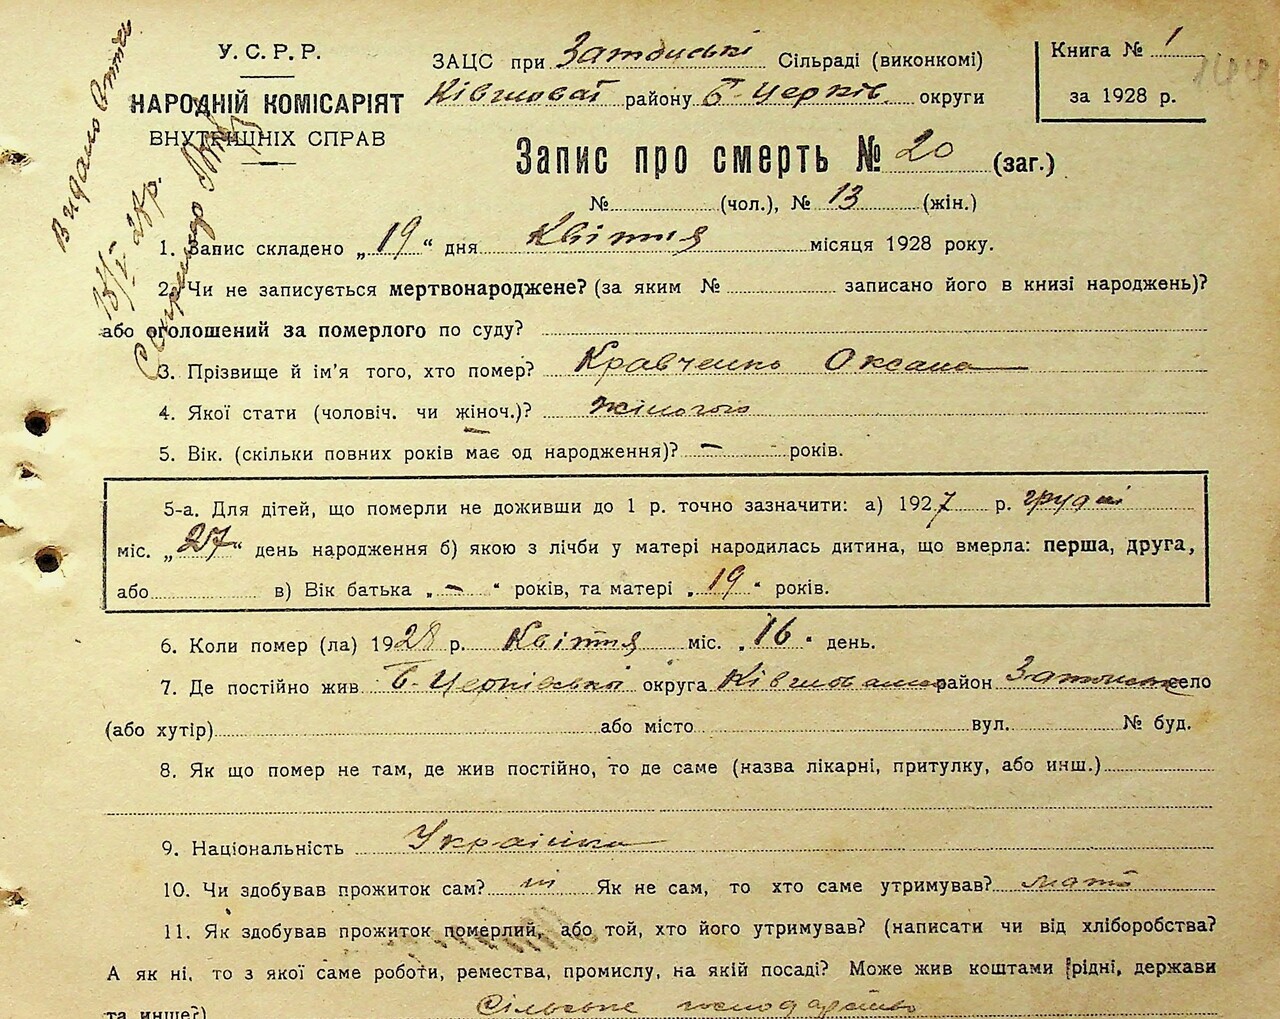 У.С.Р.Р.
НАРОДНІЙ КОМІСАРІЯТ
ВНУТРІШНІХ СПРАВ
Видано
15/V 28р.
ЗАЦС при Затонські Сільраді (виконкомі)
Ківшоваті району Б-Церків. округи
Книга № 1
за 1928 р.
144
Запис про смерть № 20 (заг.)
№ (чол.), № 13 (жін.)
1. Запис складено „19“ дня Квітня місяця 1928 року.
2. Чи не записується мертвонароджене? (за яким № записано його в книзі народжень)?
або оголошений за померлого по суду?
3. Прізвище й ім'я того, хто помер? Кравченко Оксана
4. Якої стати (чоловіч. чи жіноч.)? жіночого
5. Вік. (скільки повних років має од народження)? — років.
5-а. Для дітей, що померли не доживши до 1 р. точно зазначити: а) 1927 р. грудні
міс. „27“ день народження б) якою з лічби у матері народилась дитина, що вмерла: перша, друга,
або в) Вік батька „—“ років, та матері „19“ років.
6. Коли помер (ла) 1928 р. Квітня міс. „16“ день.
7. Де постійно жив Б-Церківської округа Ківшоват район Затонськ село
(або хутір) або місто вул. № буд.
8. Як що помер не там, де жив постійно, то де саме (назва лікарні, притулку, або инш.)
9. Національність Українка
10. Чи здобував прожиток сам? ні Як не сам, то хто саме утримував? мати
11. Як здобував прожиток померлий, або той, хто його утримував? (написати чи від хліборобства?
А як ні, то з якої саме роботи, ремества, промислу, на якій посаді? Може жив коштами рідні, держави
та инше?) Сільське господарство